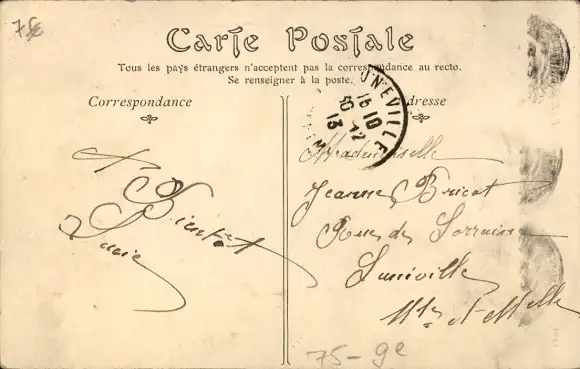 75e
Carte Postale
Tous les pays étrangers n'acceptent pas la correspondance au recto.
Se renseigner à la poste.
Correspondance
Adresse
LUNEVILLE
15 10
30 -12
13
A Bientôt
Lucie
Mademoiselle
Jeanne Bricot
Rue de Lorraine
Luneville
Mthe et Mlle
75-9e